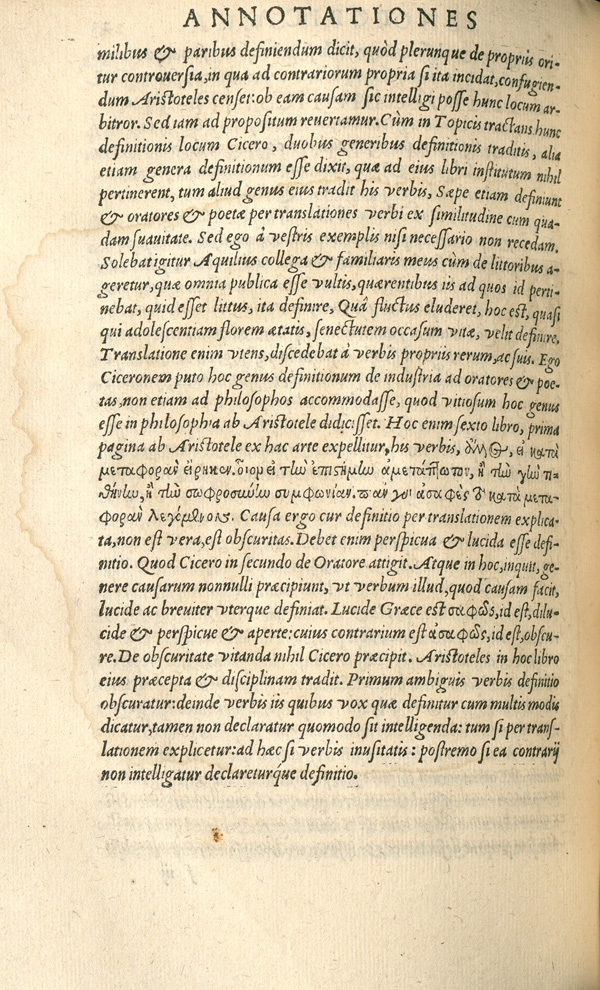 ANNOTATIONES
milibus & paribus definiendum dicit, quòd plerunque de propriis ori-
tur controuersia, in qua ad contrariorum propria si ita incidat, confugien-
dum Aristoteles censet: ob eam causam sic intelligi posse hunc locum ar-
bitror. Sed iam ad propositum reuertamur. Cùm in Topicis tractans hunc
definitionis locum Cicero, duobus generibus definitionis traditis, alia
etiam genera definitionum esse dixit, quæ ad eius libri institutum nihil
pertinerent, tum aliud genus eius tradit his verbis, Sæpe etiam definiunt
& oratores & poetæ per translationes verbi ex similitudine cum qua-
dam suauitate. Sed ego à vestris exemplis nisi necessario non recedam.
Solebat igitur Aquilius collega & familiaris meus cùm de littoribus a-
geretur, quæ omnia publica esse vultis, quærentibus iis ad quos id perti-
nebat, quid esset littus, ita definire, Quâ fluctus eluderet, hoc est, quasi
qui adolescentiam florem ætatis, senectutem occasum vitæ, velit definire.
Translatione enim vtens, discedebat à verbis propriis rerum, ac suis. Ego
Ciceronem puto hoc genus definitionum de industria ad oratores & poe-
tas, non etiam ad philosophos accommodasse, quod vitiosum hoc genus
esse in philosophia ab Aristotele didicisset. Hoc enim sexto libro, prima
pagina ab Aristotele ex hac arte expellitur, his verbis, εἰ κατὰ
μεταφορὰν εἴρηκεν. οἷον εἰ τὴν ἐπιστήμην ἀμετάπτωτον, ἢ τὴν γῆν τι-
θήνην, ἢ τὴν σωφροσύνην συμφωνίαν. πᾶν γὰρ ἀσαφὲς τὸ κατὰ μετα-
φορὰν λεγόμενον. Causa ergo cur definitio per translationem explica-
ta, non est vera, est obscuritas. Debet enim perspicua & lucida esse defi-
nitio. Quod Cicero in secundo de Oratore attigit. Atque in hoc, inquit, ge-
nere causarum nonnulli præcipiunt, vt verbum illud, quod causam facit,
lucide ac breuiter vterque definiat. Lucide Græce est σαφῶς, id est, dilu-
cide & perspicue & aperte: cuius contrarium est ἀσαφῶς, id est, obscu-
re. De obscuritate vitanda nihil Cicero præcipit. Aristoteles in hoc libro
eius præcepta & disciplinam tradit. Primum ambiguis verbis definitio
obscuratur: deinde verbis iis quibus vox quæ definitur cum multis modis
dicatur, tamen non declaratur quomodo sit intelligenda: tum si per trans-
lationem explicetur: ad hæc si verbis inusitatis: postremo si ea contrarij
non intelligatur declareturque definitio.